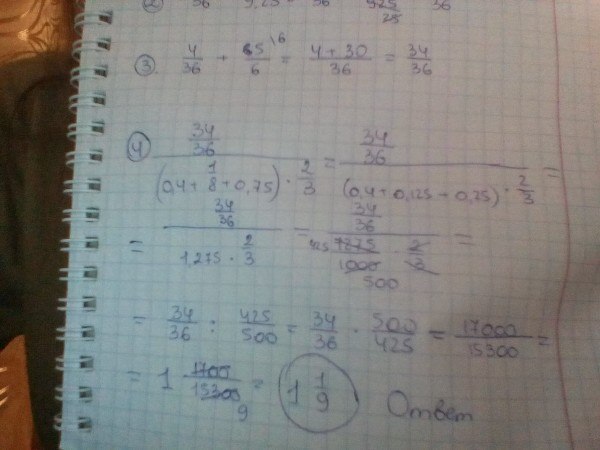 ③. 4/36 + 5/6 \6 = (4+30)/36 = 34/36
④ (34/36)/((0,4 + 1/8 + 0,75) · 2/3) = (34/36)/((0,4 + 0,125 + 0,75) · 2/3) =
= (34/36)/(1,275 · 2/3) = (34/36)/(1275/1000 · 2/3) =
425
500
= 34/36 : 425/500 = 34/36 · 500/425 = 17000/15300 =
= 1 1700/15300 = 1 1/9 Ответ
9